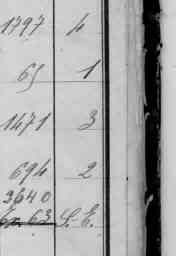 1797 4
65 1
1471 3
694 2
3640
63 S. E.